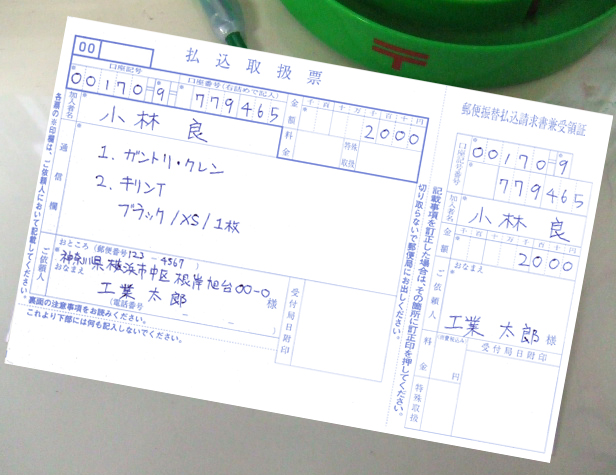 00
払込取扱票
口座記号
口座番号(右詰めで記入)
00170-9-
779465
金額
千百十万千百十円
2000
加入者名
小林 良
料金
特殊取扱
各票の※印欄は、ご依頼人において記載してください。
通信欄
1. ガントリ・クレン
2. キリンT
ブラック/XS/1枚
ご依頼人
おところ(郵便番号123-4567)
神奈川県横浜市中区根岸旭台00-0
おなまえ
工業 太郎
様
(電話番号 - - )
受付局日附印
裏面の注意事項をお読みください。
これより下部には何も記入しないでください。
切り取らないで郵便局にお出しください。
記載事項を訂正した場合は、その箇所に訂正印を押してください。
郵便振替払込請求書兼受領証
口座記号番号
00170-9
779465
加入者名
小林 良
金額
千百十万千百十円
2000
ご依頼人
おなまえ
工業 太郎
様
料金
(消費税込み)
円
特殊取扱
受付局日附印